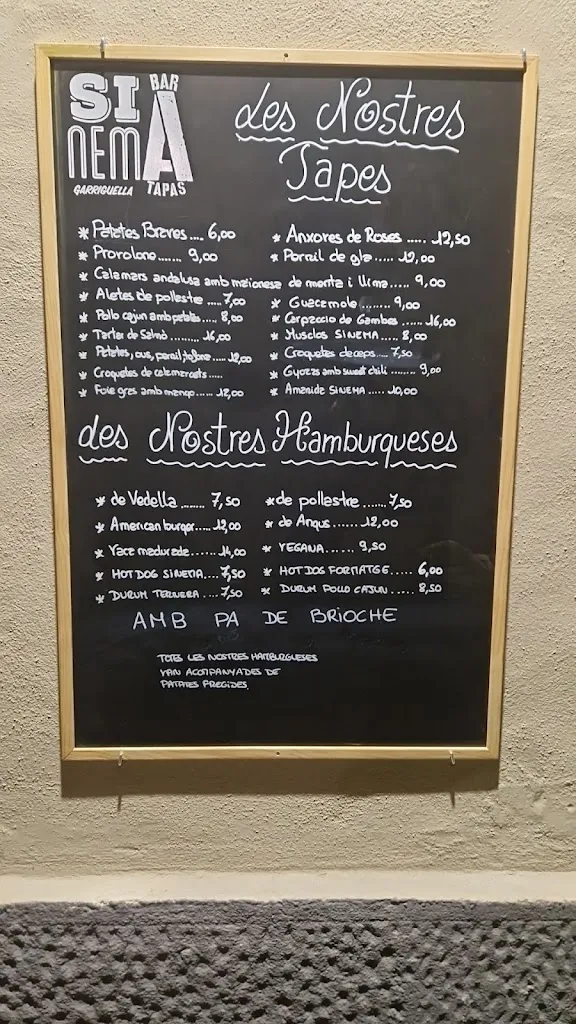 SI
NEMA
BAR
TAPAS
GARRIGUELLA
Les Nostres
Tapes
* Patates Braves.... 6,00
* Provolone...... 9,00
* Calamars andalusa amb maionesa de menta i llima..... 9,00
* Aletes de pollastre ..... 7,00
* Pollo cajun amb patates ..... 8,00
* Tartar de Salmó ....... 16,00
* Patates, ous, pernil, tòfona .... 12,00
* Croquetes de calamarcets .....
* Foie gras amb mango..... 12,00
* Anxoves de Roses ..... 12,50
* Pernil de gla ..... 12,00
* Guacamole ..... 9,00
* Carpaccio de Gambes ..... 16,00
* Musclos SINEMA .... 8,00
* Croquetes de ceps.... 7,50
* Gyozas amb sweet chili ........ 9,00
* Amanida SINEMA .... 10,00
Les Nostres Hamburgueses
* de Vedella ....... 7,50
* American burger..... 12,00
* Vaca madurada...... 14,00
* HOT DOG SINEMA.... 7,50
* DURUM TERNERA .... 7,50
* de pollastre...... 7,50
* de Angus...... 12,00
* VEGANA..... 9,50
* HOT DOG FORMATGE..... 6,00
* DURUM POLLO CAJUN ..... 8,50
AMB PA DE BRIOCHE
TOTES LES NOSTRES HAMBURGUESES
VAN ACOMPANYADES DE
PATATES FREGIDES.